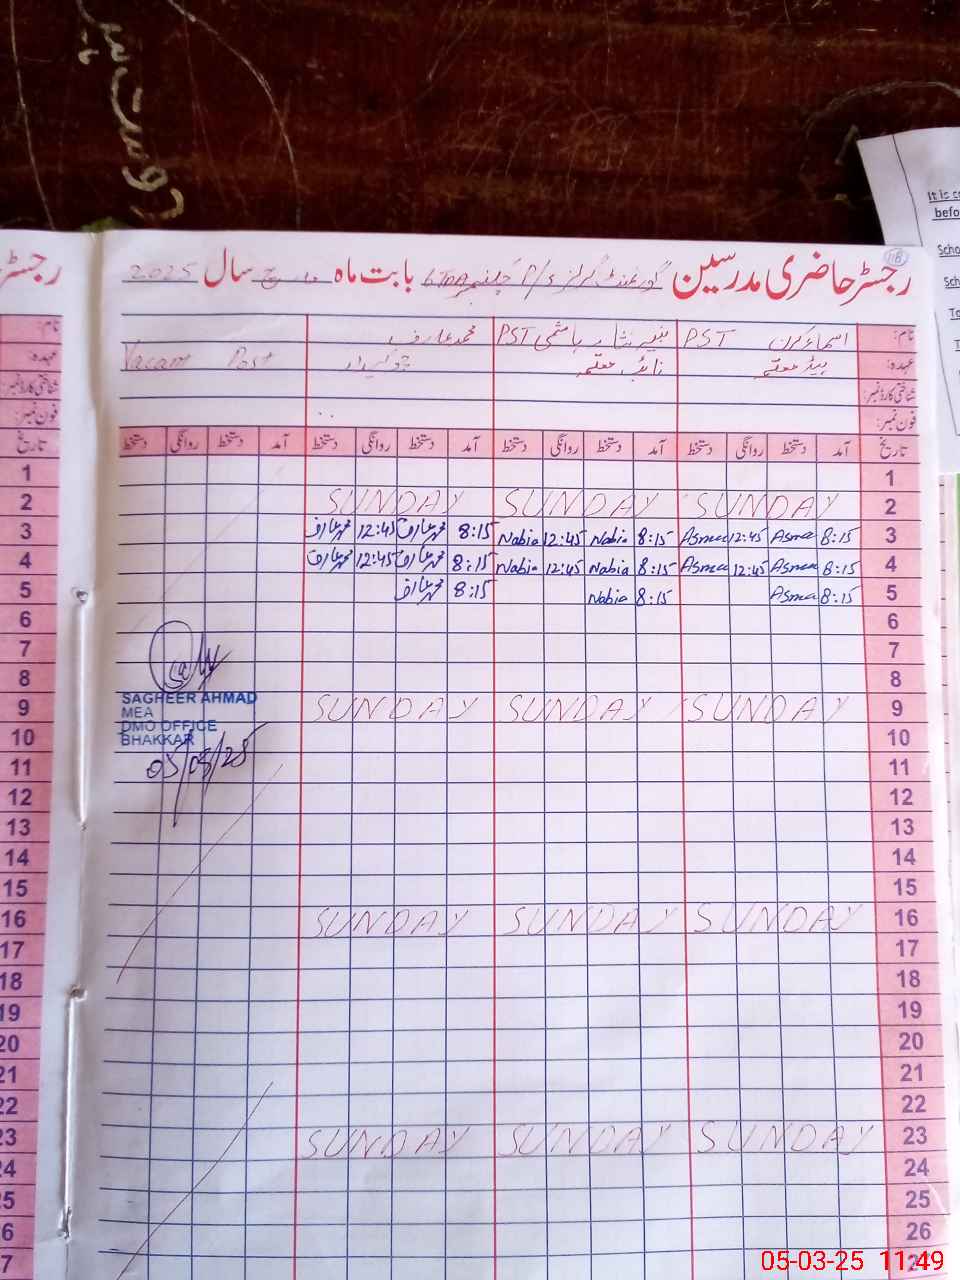 It is c
befo
Scho
Sch
To
T
118
رجسٹر حاضری مدرسین گورنمنٹ گرلز P/S بابت ماہ مارچ سال 2025
نام: اسماء کرن PST PST محمد عارف
عہدہ: ہیڈ معلمہ نائب معلمہ چوکیدار Vacant Post
شناختی کارڈ نمبر:
فون نمبر:
تاریخ آمد دستخط روانگی دستخط آمد دستخط روانگی دستخط آمد دستخط روانگی دستخط آمد دستخط روانگی دستخط
1
2 SUNDAY SUNDAY SUNDAY
3 8:15 Asma 12:45 Asma 8:15 Nabia 12:45 Nabia 8:15 محمد عارف 12:45 محمد عارف
4 8:15 Asma 12:45 Asma 8:15 Nabia 12:45 Nabia 8:15 محمد عارف 12:45 محمد عارف
5 8:15 Asma 8:15 Nabia 8:15 محمد عارف
6
7
8
9 SUNDAY SUNDAY SUNDAY
10
11
12
13
14
15
16 SUNDAY SUNDAY SUNDAY
17
18
19
20
21
22
23 SUNDAY SUNDAY SUNDAY
24
25
26
SAGHEER AHMAD
MEA
DMO OFFICE
BHAKKAR
05/03/25
رجسٹر
نام:
عہدہ:
شناختی کارڈ نمبر:
فون نمبر:
تاریخ
1
2
3
4
5
6
7
8
9
10
11
12
13
14
15
16
17
18
19
20
21
22
23
24
05-03-25 11:49